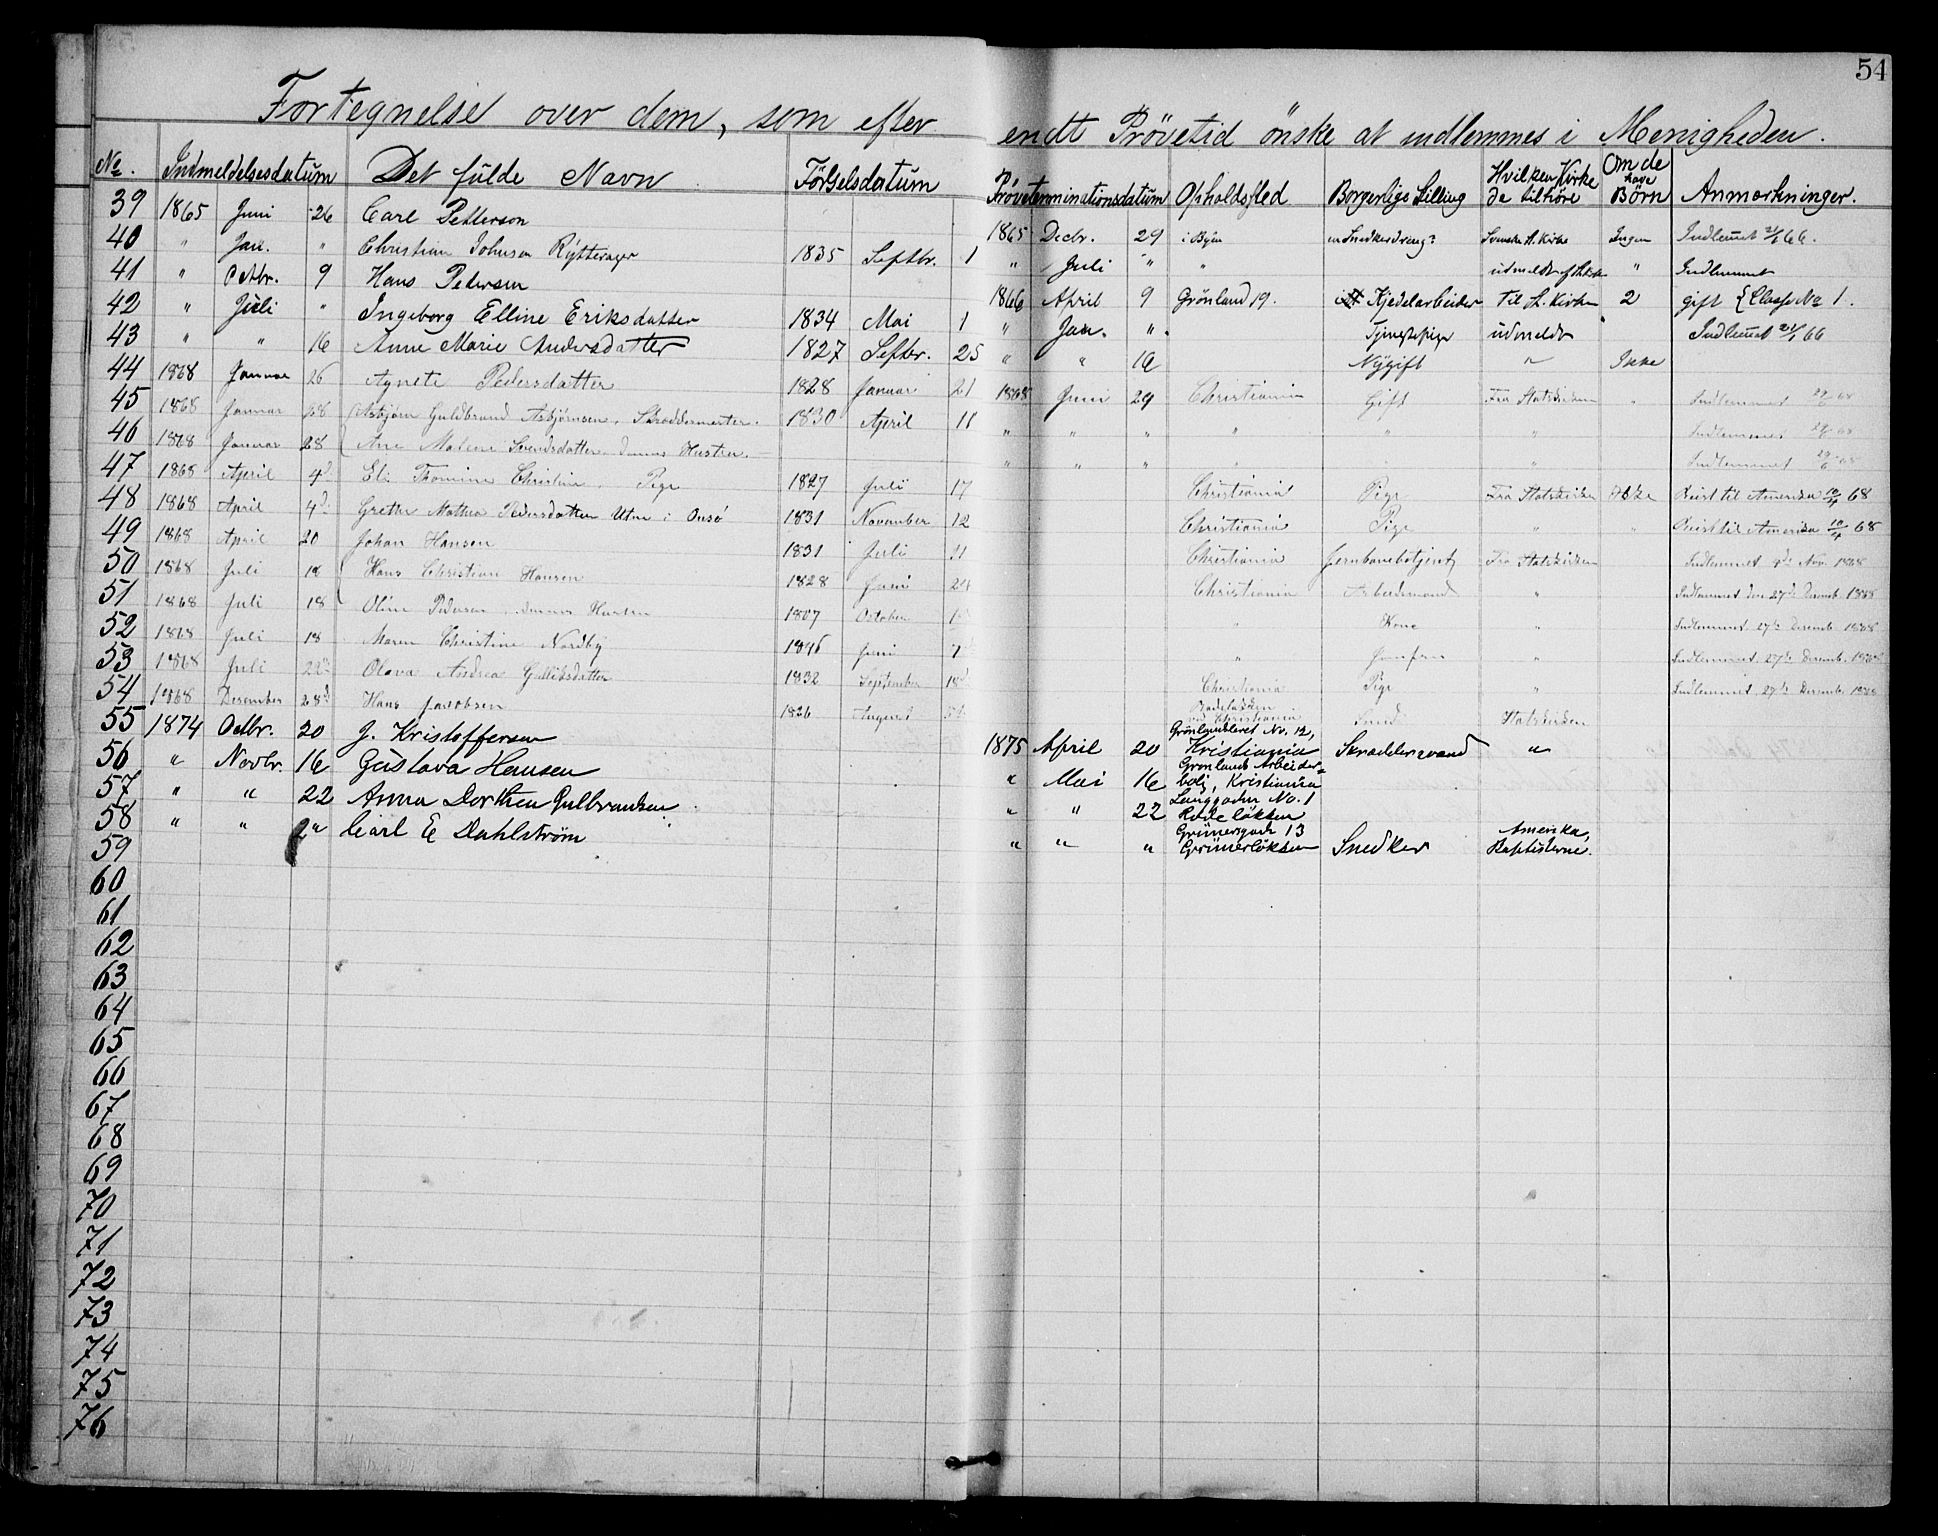 54
Fortegnelse over dem, som efter endt Prövetid önske at indlemmes i Menigheden.
No. Indmeldelsesdatum Det fulde Navn Förselsdatum Prøveterminationsdatum Opholdssted Borgerlige Stilling Hvilken Kirke de tilhöre Om de have Börn Anmærkninger.
39 1865 Juni 26 Carl Petterson 1865 Decbr. 29 i Byen Svenske St. Kirke Ingen Indlemmet 21/1 66.
40 " Jan. " Christian Johnsen Rytterager 1835 Septbr. 1 " Juli " " udmeldt af " Indlemmet
41 " Octbr. 9 Hans Pedersen 1866 April 9 Grönland 19. Kjedelarbeider til St. Kirken 2 gift { Classe No 1.
42 " Juli " Ingeborg Elline Eriksdatter 1834 Mai 1 " Jan. " Tjenestepige udmeldt Indlemmet 21/1 66
43 " " 16 Anne Marie Andersdatter 1827 Septbr. 25 " " 16 Nÿgift " Ikke
44 1868 Januar 26 Agnete Pedersdatter 1828 Januar 21 1868 Juni 29 Christiania Gift Fra Statskirken " Indlemmet 29/6 68
45 1868 Januar 28 Asbjörn Guldbrand Asbjörnsen, Skræddermester. 1830 April 11 " " " " " " Indlemmet 29/6 68
46 1868 Januar 28 Ane Malene Svendsdatter, dennes Hustru. " " " " " Indlemmet 29/6 68
47 1868 April 4d Eli Thomine Christine, Pige 1827 Juli 17 Christiania Pige Fra Statskirken Ikke Reist til Amerika 10/4 68
48 1868 April 4d Grethe Mathea Pedersdatter Utne i Onsö 1831 November 12 Christiania Pige " " Reist til Amerika 10/4 68
49 1868 April 20 Johan Hansen 1831 Juli 21 Christiania Jernbanebetjent Fra Statskirken Indlemmet Nov. 1868
50 1868 Juli 18 Hans Christian Hansen 1828 Juni 24 Christiania Arbeidsmand " Indlemmet den 27de Decemb. 1868
51 1868 Juli 18 Oline Pedersen, dennes Hustru 1807 October " Kone " Indlemmet 27de Decemb. 1868
52 1868 Juli 18 Maren Christine Nordby 1846 Juni 7 " Jomfru " Indlemmet 27de Decemb. 1868
53 1868 Juli 22 Olava Andrea Gulliksdatter 1832 September 18d Christiania Pige " Indlemmet 27de Decemb. 1868
54 1868 Desember 28d Hans Jacobsen 1826 August Rodeløkken ved Christiania Smed Statskirken
55 1874 Octbr. 20 J. Kristoffersen 1875 April 20 Grønlandsleret No. 12, Kristiania Skræddersvend "
56 " Novbr. 16 Gustava Hansen " Mai 16 Grønlands Arbeiderbolig, Kristiania
57 " " 22 Anna Dorthea Gulbrandsen " " 22 Langgaden No. 1 Rodeløkken
58 " " 2" Carl E Dahlstrøm " " " Grünersgade 13 Grünerløkken Snedker Amerika, Baptisterne.
59
60
61
62
63
64
65
66
67
68
69
70
71
72
73
74
75
76